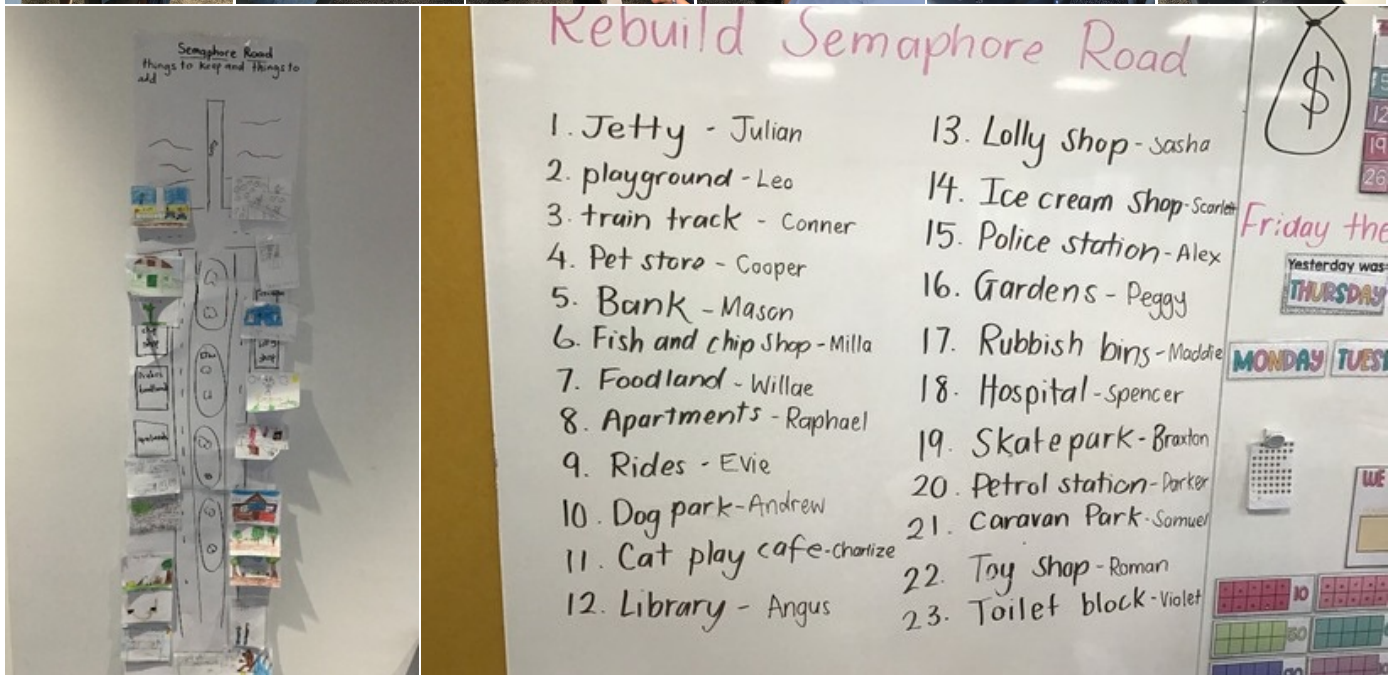 Semaphore Road
things to keep and things to
add
Rebuild Semaphore Road
1. Jetty - Julian
2. playground - Leo
3. train track - Conner
4. Pet store - Cooper
5. Bank - Mason
6. Fish and chip shop - Milla
7. Foodland - Willae
8. Apartments - Raphael
9. Rides - Evie
10. Dog park - Andrew
11. Cat play cafe - Charlize
12. Library - Angus
13. Lolly shop - Sasha
14. Ice cream shop - Scarlett
15. Police station - Alex
16. Gardens - Peggy
17. Rubbish bins - Maddie
18. Hospital - Spencer
19. Skate park - Braxton
20. Petrol station - Parker
21. Caravan Park - Samuel
22. Toy shop - Roman
23. Toilet block - Violet
$
5
12
19
26
Friday the
Yesterday was
THURSDAY
MONDAY
TUES
WE
10
60